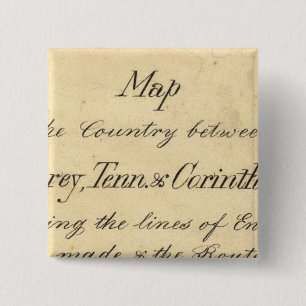 Map
he Country betwee
rey, Tenn. & Corinth
ing the lines of En
made & the Route